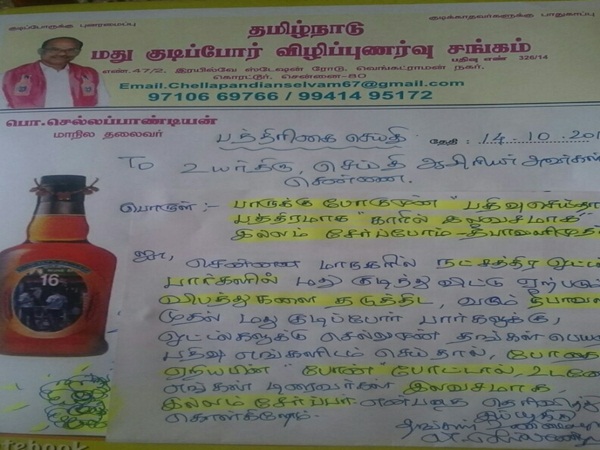 குடிப்போருக்கு புனரமைப்பு
குடிக்காதவர்களுக்கு பாதுகாப்பு
தமிழ்நாடு
மது குடிப்போர் விழிப்புணர்வு சங்கம்
பதிவு எண் 326/14
எண்.47/2, இரயில்வே ஸ்டேஷன் ரோடு, வெங்கட்ராமன் நகர்,
கொரட்டூர், சென்னை-80
Email.Chellapandianselvam67@gmail.com
97106 69766 / 99414 95172
பொ.செல்லப்பாண்டியன்
மாநில தலைவர்
பத்திரிகை செய்தி
தேதி : 14.10.201
To உயர்திரு, செய்தி ஆசிரியர் அவர்கள்
சென்னை.
பொருள் :- பாருக்கு போகுமுன் "பதிவு செய்தா
பத்திரமாக "காரில் இலவசமாக"
இல்லம் சேர்ப்போம் - தீபாவளிமுதல்
ஐயா, சென்னை மாநகரில் நட்சத்திர ஓட்டல்
பார்களில் மது குடித்து விட்டு ஏற்படும்
விபத்துகளை தடுத்திட, வரும் தீபாவளி
முதல் மது குடிப்போர் பார்களுக்கு,
ஓட்டல்களுக்கு செல்லுமுன் தங்கள் பெய
பதிவு எங்களிடம் செய்தால், போதை
ஏறியபின் "போன்" போட்டால், உடனே
எங்கள் டிரைவர்கள் இலவசமாக
இல்லம் சேர்ப்பர் என்பதை தெரிவித்து
கொள்கிறோம்.
இப்படிக்கு
16